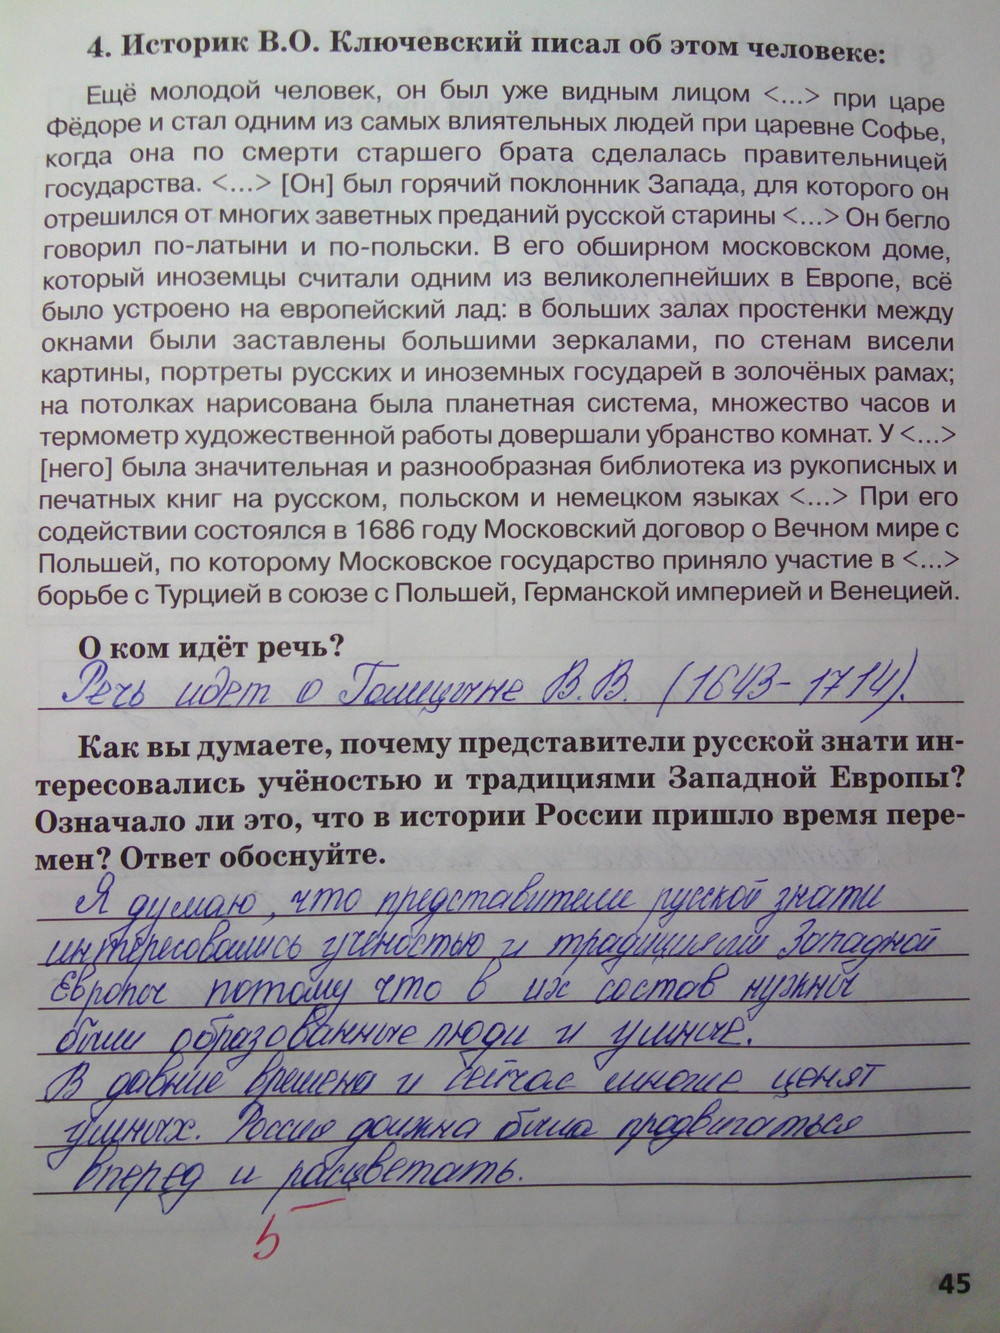 4. Историк В.О. Ключевский писал об этом человеке:
Ещё молодой человек, он был уже видным лицом <...> при царе
Фёдоре и стал одним из самых влиятельных людей при царевне Софье,
когда она по смерти старшего брата сделалась правительницей
государства. <...> [Он] был горячий поклонник Запада, для которого он
отрешился от многих заветных преданий русской старины <...> Он бегло
говорил по-латыни и по-польски. В его обширном московском доме,
который иноземцы считали одним из великолепнейших в Европе, всё
было устроено на европейский лад: в больших залах простенки между
окнами были заставлены большими зеркалами, по стенам висели
картины, портреты русских и иноземных государей в золочёных рамах;
на потолках нарисована была планетная система, множество часов и
термометр художественной работы довершали убранство комнат. У <...>
[него] была значительная и разнообразная библиотека из рукописных и
печатных книг на русском, польском и немецком языках <...> При его
содействии состоялся в 1686 году Московский договор о Вечном мире с
Польшей, по которому Московское государство приняло участие в <...>
борьбе с Турцией в союзе с Польшей, Германской империей и Венецией.
О ком идёт речь?
Речь идет о Голицыне В.В. (1643-1714).
Как вы думаете, почему представители русской знати ин-
тересовались учёностью и традициями Западной Европы?
Означало ли это, что в истории России пришло время пере-
мен? Ответ обоснуйте.
Я думаю, что представители русской знати
интересовались учёностью и традициями Западной
Европы потому что в их состав нужны
были образованные люди и умные.
В давние времена и сейчас многие ценят
умных. Россия должна была продвигаться
вперед и расцветать.
5
45